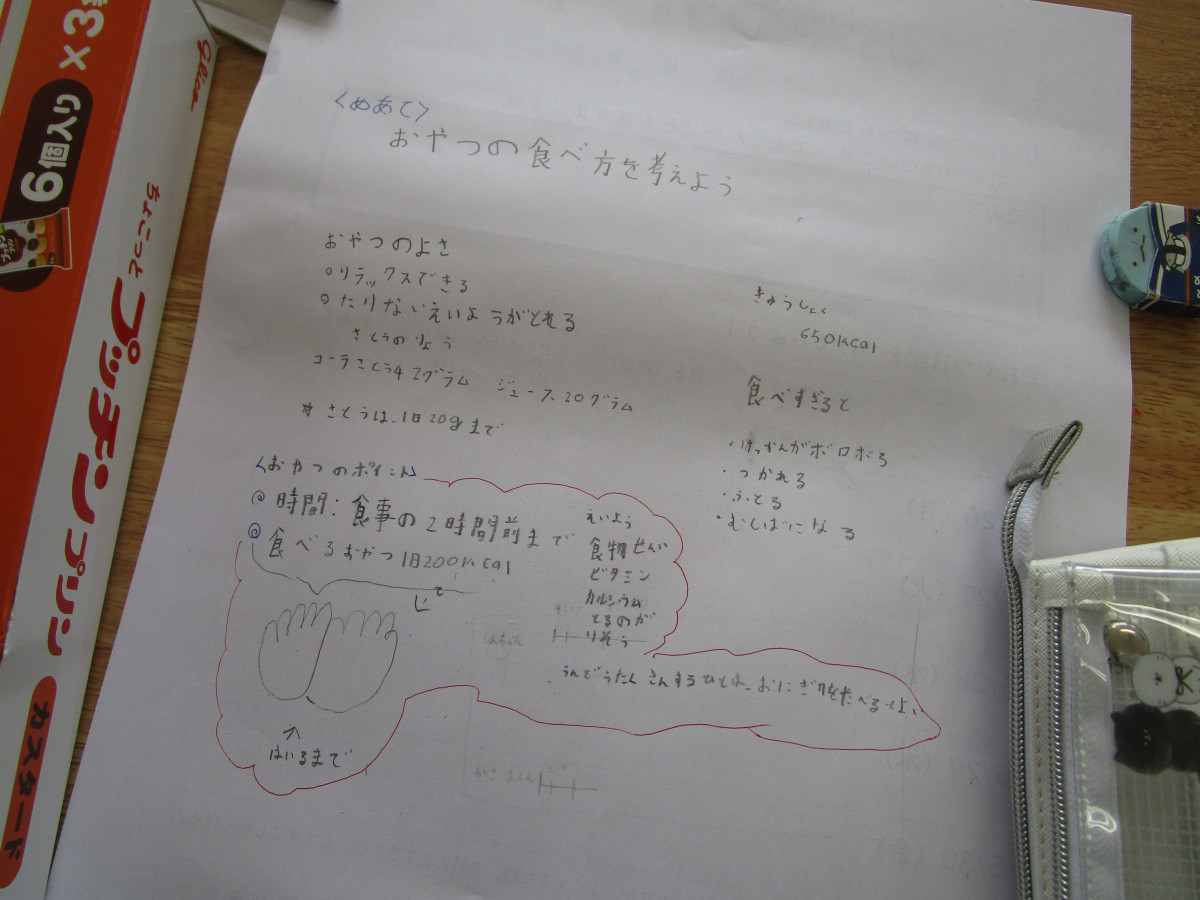 <めあて>
おやつの食べ方を考えよう
おやつのよさ
○リラックスできる
○たりないえいようがとれる
さとうのりょう
コーラさとう42グラム ジュース20グラム
*さとうは、1日20gまで
きゅうしょく
650kcal
食べすぎると
・けっかんがボロボロ
・つかれる
・ふとる
・むしばになる
<おやつのポイント>
◎時間:食事の2時間前まで
◎食べるおやつ1日200kcal
えいよう
食物せんい
ビタミン
カルシウム
とるのが
りそう
うんどうたくさんするひとは、おにぎりをたべるとよい
はいるまで
glico
9個入り
×3
ちょこっと
プッチンプリン
カスタード